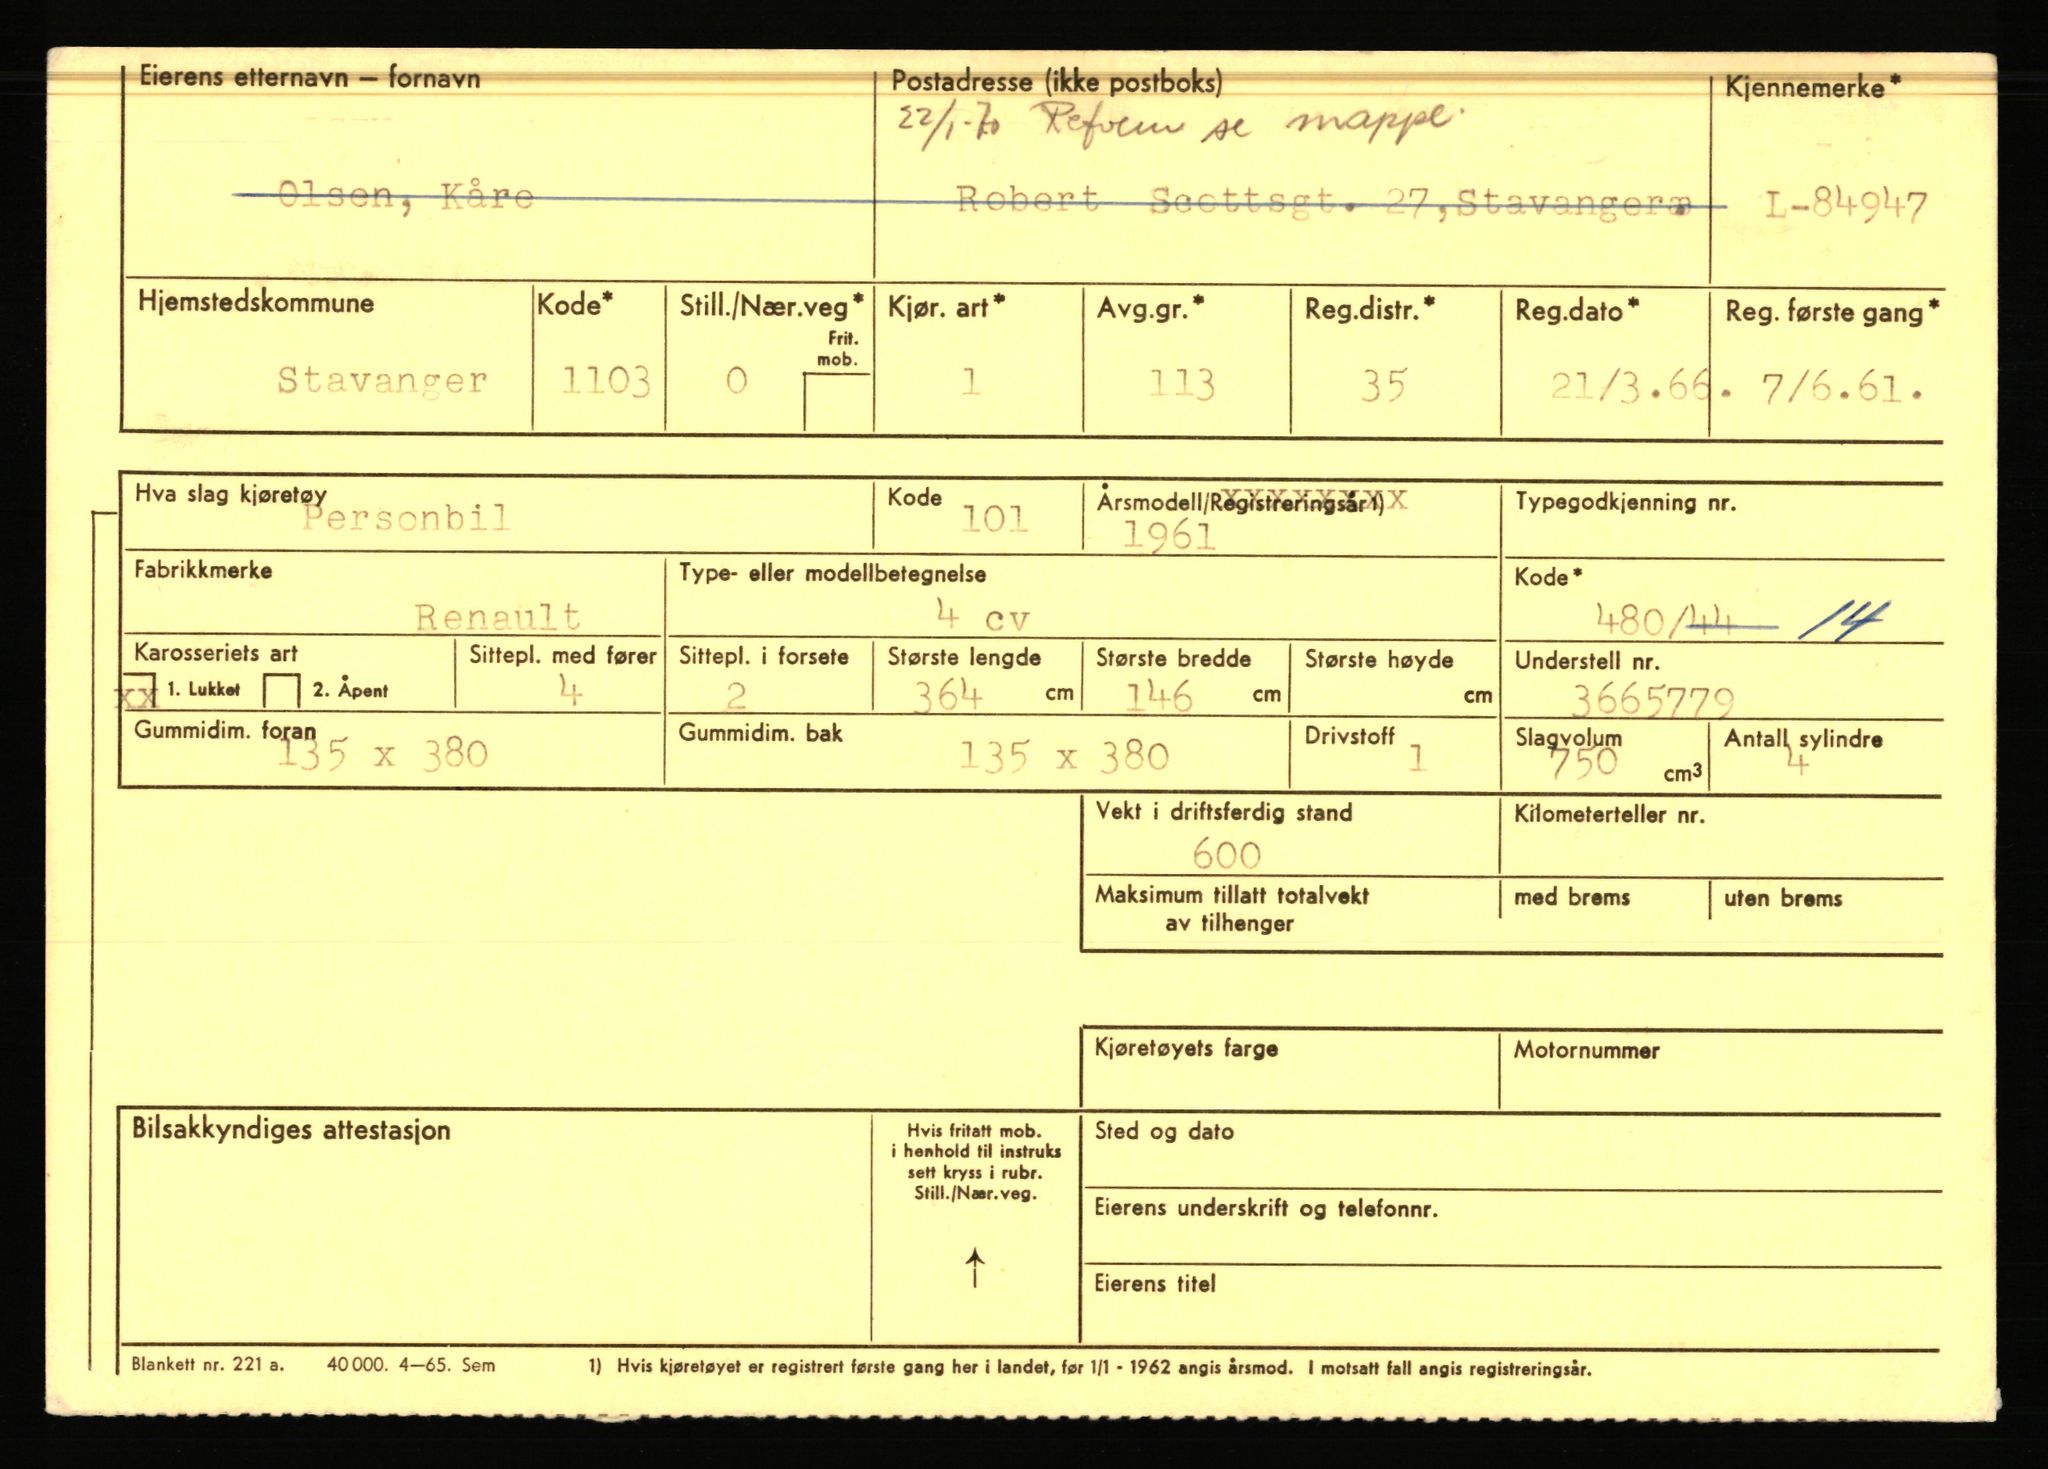 Eierens etternavn – fornavn Postadresse (ikke postboks) Kjennemerke*
22/1-70 Reform se mappe.
Olsen, Kåre Robert Scottsgt. 27, Stavanger. L-84947
Hjemstedskommune Kode* Still./Nær.veg* Kjør. art* Avg.gr.* Reg.distr.* Reg.dato* Reg. første gang*
Frit.
mob.
Stavanger 1103 0 1 113 35 21/3.66. 7/6.61.
Hva slag kjøretøy Kode Årsmodell/Registreringsår 1) Typegodkjenning nr.
xxxxxxxx
Personbil 101 1961
Fabrikkmerke Type- eller modellbetegnelse Kode*
Renault 4 cv 480/44 14
Karosseriets art Sittepl. med fører Sittepl. i forsete Største lengde Største bredde Største høyde Understell nr.
xx 1. Lukket 2. Åpent 4 2 364 cm 146 cm cm 3665779
Gummidim. foran Gummidim. bak Drivstoff Slagvolum Antall sylindre
135 x 380 135 x 380 1 750 cm3 4
Vekt i driftsferdig stand Kilometerteller nr.
600
Maksimum tillatt totalvekt med brems uten brems
av tilhenger
Kjøretøyets farge Motornummer
Bilsakkyndiges attestasjon Hvis fritatt mob. Sted og dato
i henhold til instruks
sett kryss i rubr.
Still./Nær.veg.
Eierens underskrift og telefonnr.
Eierens titel
Blankett nr. 221 a. 40 000. 4–65. Sem 1) Hvis kjøretøyet er registrert første gang her i landet, før 1/1 - 1962 angis årsmod. I motsatt fall angis registreringsår.